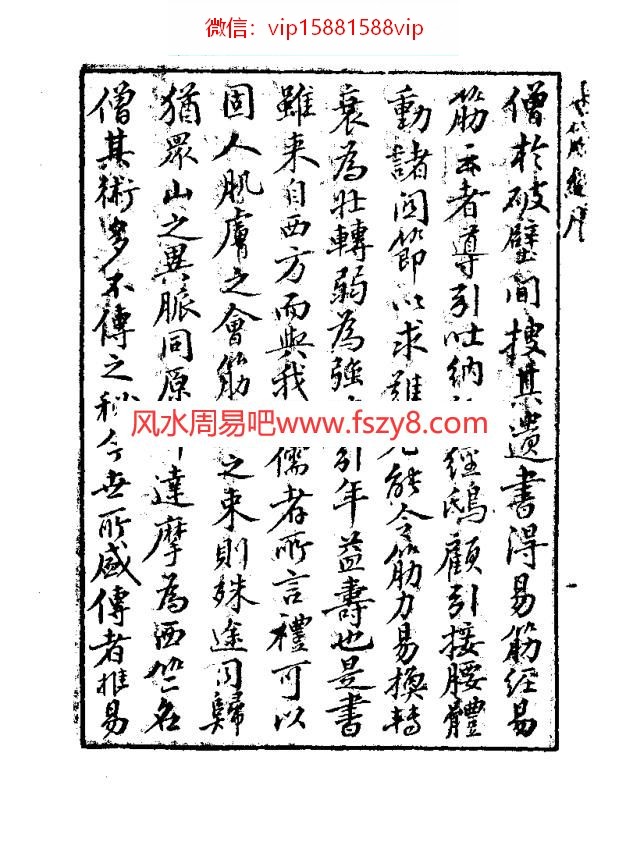 微信：vip15881588vip
僧於破壁间搜其遗書得易筋经易
筋云者導引吐納 经鴟顧引接腰體
動諸関節以求難 能令筋力易換轉
衰為壯轉弱為強 引年益壽也是書
雖来自西方而與我 儒者所言禮可以
固人肌膚之會筋 之束則殊途同歸
猶眾山之異脈同原 達摩為西竺名
僧其術多不傳之秘今世所盛傳者推易
风水周易吧www.fszy8.com